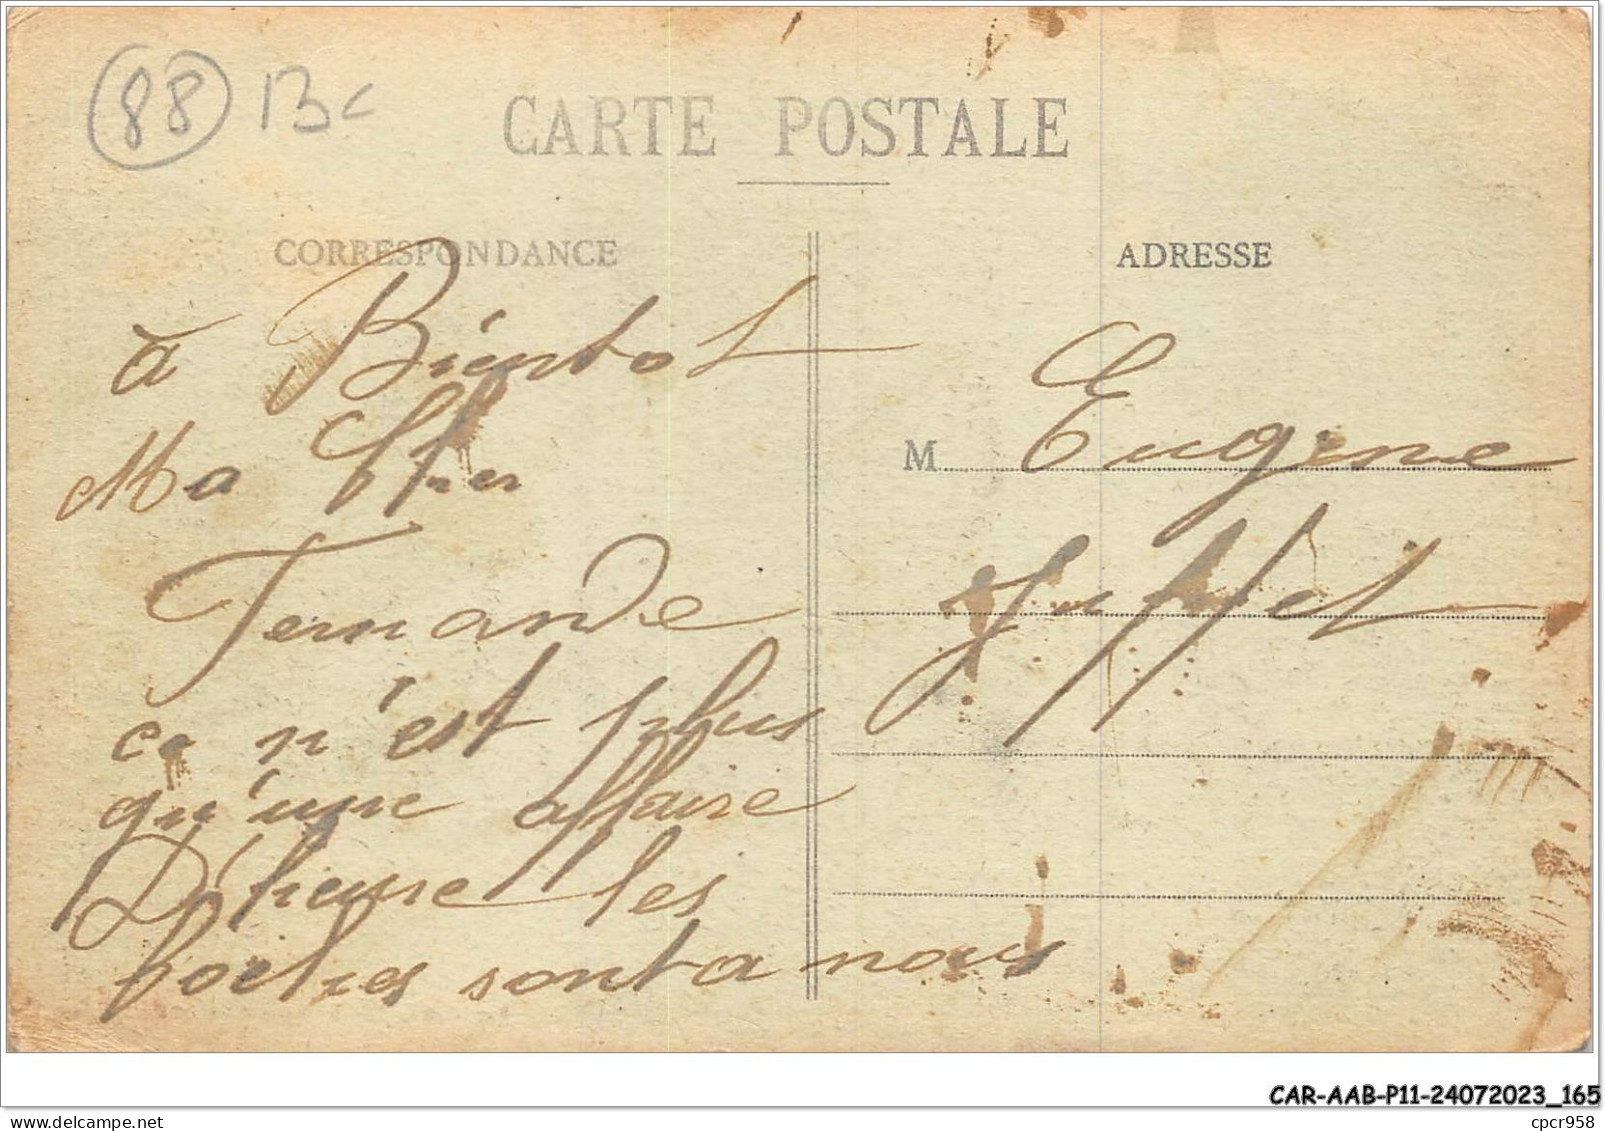 88 13c
CARTE POSTALE
CORRESPONDANCE
ADRESSE
à Bientot
Ma Cher
Fernande
ca n'est plus
qu'une affaire
D'heure les
boches sont a nous
M Eugene
CAR-AAB-P11-24072023_165
delcampe.net
cpcr958